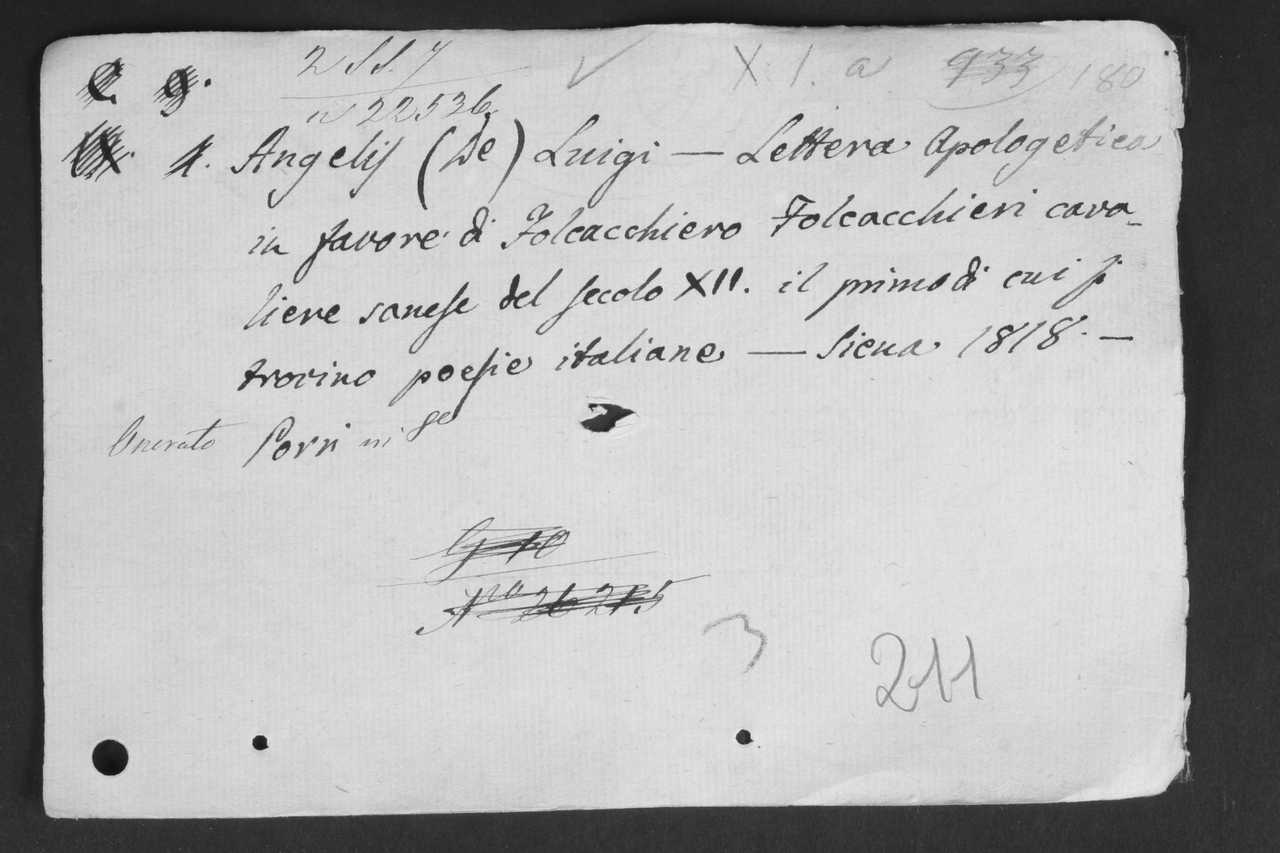 C g. 2 SS. 7 X I. a 933 180
n 22536
4. Angelis (De) Luigi — Lettera Apologetica
in favore di Folcacchiero Folcacchieri cava-
liere sanese del secolo XII. il primo di cui si
trovino poesie italiane — Siena 1818. —
Onorato Porri in 8º
G 10
Nº 26215
3
211